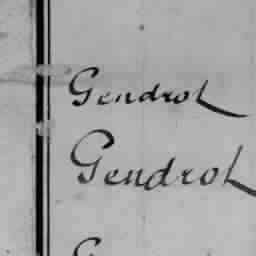 Gendrot
Gendrot